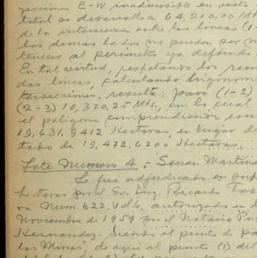 yecciones E-W. inadmisible en vista
total se desarrolla 64,200.00 Mts
de la interseccion entre las lineas (1-
los demas lados no pueden por
tenecer al perimetro ya defendi
En tal virtud, respetamos los
das lineas, calculando trigonom
tersecciones, resulta: para (1-2)
(2-3) 10,320.25 Mts, con lo cual
el poligono comprendieron
19,631.9412 Hectareas, en lugar de
tado de 19,422.6200 Hectareas.
Lote Numero 4.- Señor Martin
Le fué adjudicada ex super
hectareas por el Sr. Ing. Ricardo
ra Num. 622. Vol 6, autorizada en
Noviembre de 1959 por el Notario
Hernandez. Siendo el punto de pa
las Minas, de aqui al punto (1) del